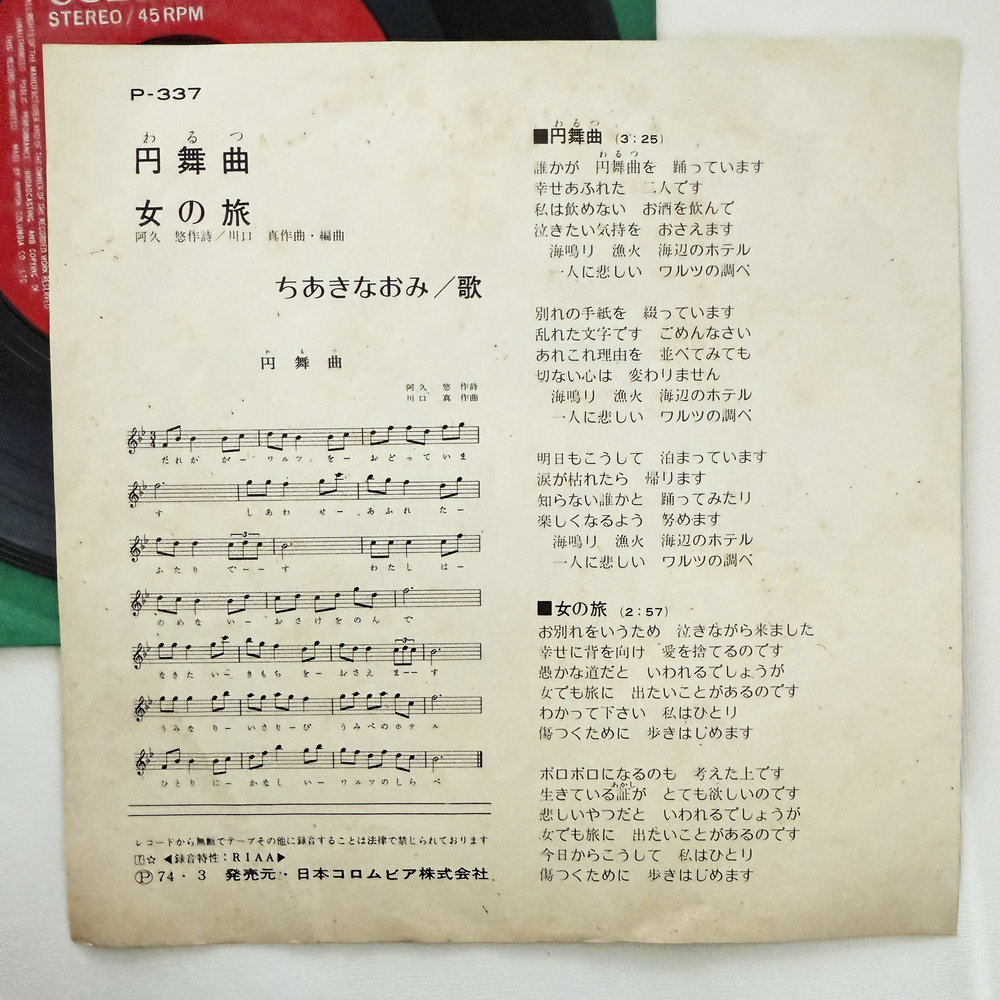 STEREO/45 RPM
P-337
わるつ
円舞曲
女の旅
阿久 悠作詩/川口 真作曲・編曲
ちあきなおみ/歌
わるつ
円舞曲
阿久 悠 作詩
川口 真 作曲
だれが がー ワルツ をー おどっていま
す しあわ せー あふれ たー
ふたり でーーす わたし はー
のめな いー おさけをのん で
なきた いー きもち をー おさえ まーーす
うみな りー いさりーび うみべのホテル
ひとり にー かなし いー ワルツのしら べ
レコードから無断でテープその他に録音することは法律で禁じられております
Ⓨ☆ ◀録音特性:RIAA▶
Ⓟ74・3 発売元・日本コロムビア株式会社
わるつ
■円舞曲 (3:25)
わるつ
誰かが 円舞曲を 踊っています
幸せあふれた 二人です
私は飲めない お酒を飲んで
泣きたい気持を おさえます
海鳴り 漁火 海辺のホテル
一人に悲しい ワルツの調べ
別れの手紙を 綴っています
乱れた文字です ごめんなさい
あれこれ理由を 並べてみても
切ない心は 変わりません
海鳴り 漁火 海辺のホテル
一人に悲しい ワルツの調べ
明日もこうして 泊まっています
涙が枯れたら 帰ります
知らない誰かと 踊ってみたり
楽しくなるよう 努めます
海鳴り 漁火 海辺のホテル
一人に悲しい ワルツの調べ
■女の旅 (2:57)
お別れをいうため 泣きながら来ました
幸せに背を向け 愛を捨てるのです
愚かな道だと いわれるでしょうが
女でも旅に 出たいことがあるのです
わかって下さい 私はひとり
傷つくために 歩きはじめます
ボロボロになるのも 考えた上です
あかし
生きている証が とても欲しいのです
悲しいやつだと いわれるでしょうが
女でも旅に 出たいことがあるのです
今日からこうして 私はひとり
傷つくために 歩きはじめます